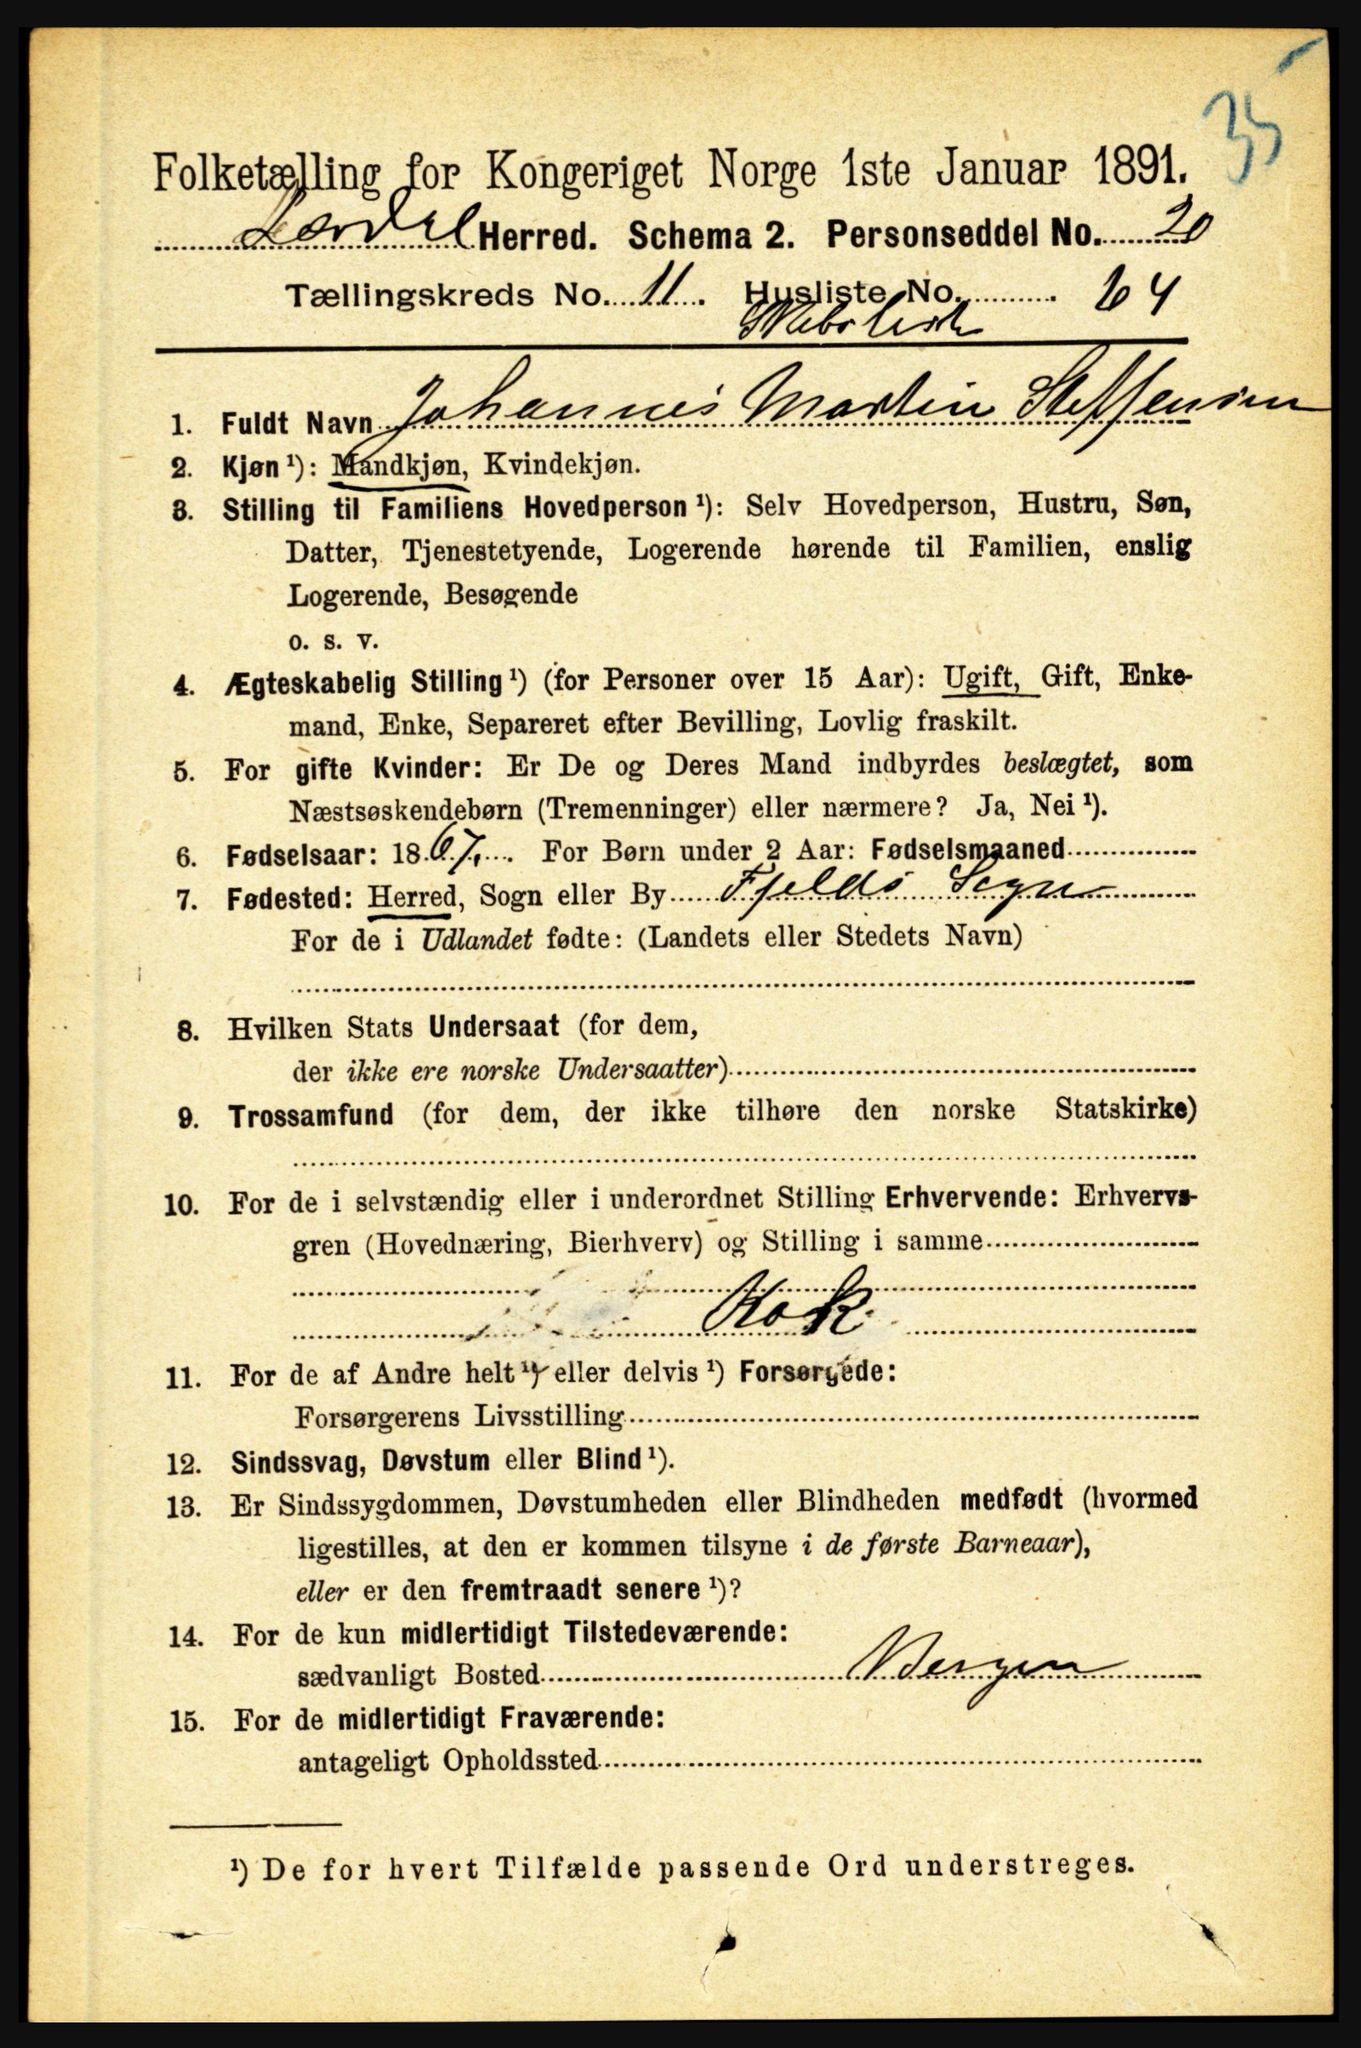 35
Folketælling for Kongeriget Norge 1ste Januar 1891.
Lærdal Herred. Schema 2. Personseddel No. 20
Tællingskreds No. 11. Husliste No. 64
Skibsliste
1. Fuldt Navn Johannes Martin Steffensen
2. Kjøn ¹): Mandkjøn, Kvindekjøn.
3. Stilling til Familiens Hovedperson ¹): Selv Hovedperson, Hustru, Søn,
Datter, Tjenestetyende, Logerende hørende til Familien, enslig
Logerende, Besøgende
o. s. v.
4. Ægteskabelig Stilling ¹) (for Personer over 15 Aar): Ugift, Gift, Enke-
mand, Enke, Separeret efter Bevilling, Lovlig fraskilt.
5. For gifte Kvinder: Er De og Deres Mand indbyrdes beslægtet, som
Næstsøskendebørn (Tremenninger) eller nærmere? Ja, Nei ¹).
6. Fødselsaar: 1867. For Børn under 2 Aar: Fødselsmaaned
7. Fødested: Herred, Sogn eller By Fjelds Sogn
For de i Udlandet fødte: (Landets eller Stedets Navn)
8. Hvilken Stats Undersaat (for dem,
der ikke ere norske Undersaatter)
9. Trossamfund (for dem, der ikke tilhøre den norske Statskirke)
10. For de i selvstændig eller i underordnet Stilling Erhvervende: Erhvervs-
gren (Hovednæring, Bierhverv) og Stilling i samme
Kok
11. For de af Andre helt ¹) eller delvis ¹) Forsørgede:
Forsørgerens Livsstilling
12. Sindssvag, Døvstum eller Blind ¹).
13. Er Sindssygdommen, Døvstumheden eller Blindheden medfødt (hvormed
ligestilles, at den er kommen tilsyne i de første Barneaar),
eller er den fremtraadt senere ¹)?
14. For de kun midlertidigt Tilstedeværende:
sædvanligt Bosted Bergen
15. For de midlertidigt Fraværende:
antageligt Opholdssted
¹) De for hvert Tilfælde passende Ord understreges.